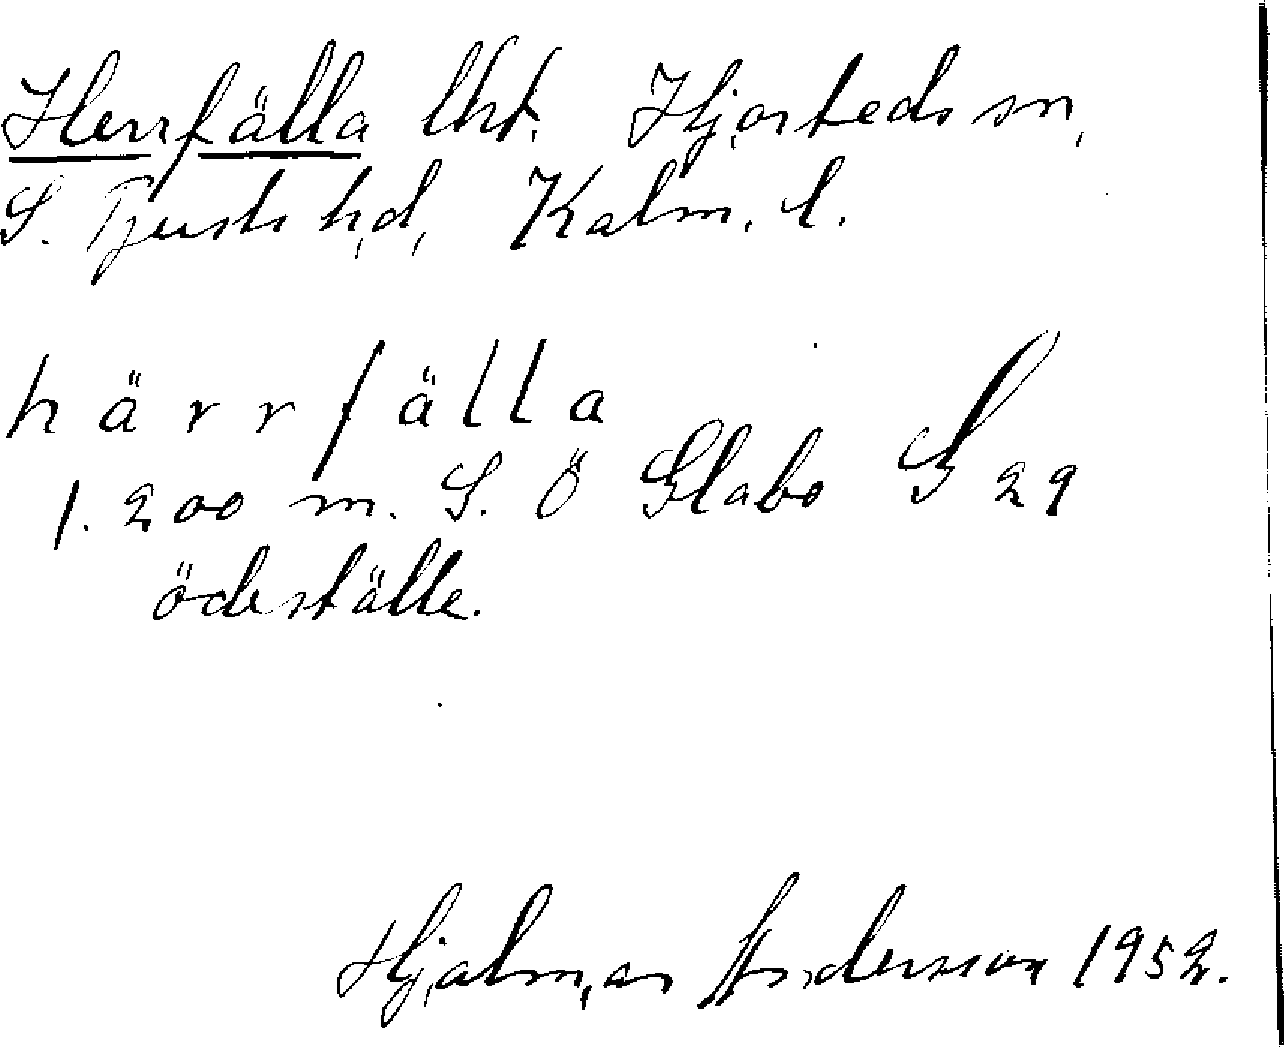 Herrfälla lht. Hjorteds sn,
S. Tjusts hd, Kalm. l.
härrfälla
1.200 m. S. Ö Glabo S 29
ödeställe.
Hjalmar Andersson 1952.